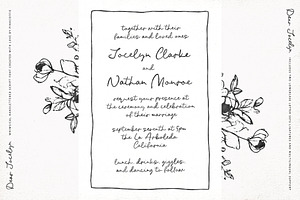 together with their
families and loved ones
Jocelyn Clarke
and
Nathan Monroe
request your presence at
the ceremony and celebration
of their marriage
september seventh at 5pm
the La Arboleda
California
lunch, drinks, giggles,
and dancing to follow
Dear Jocelyn
Dear Jocelyn